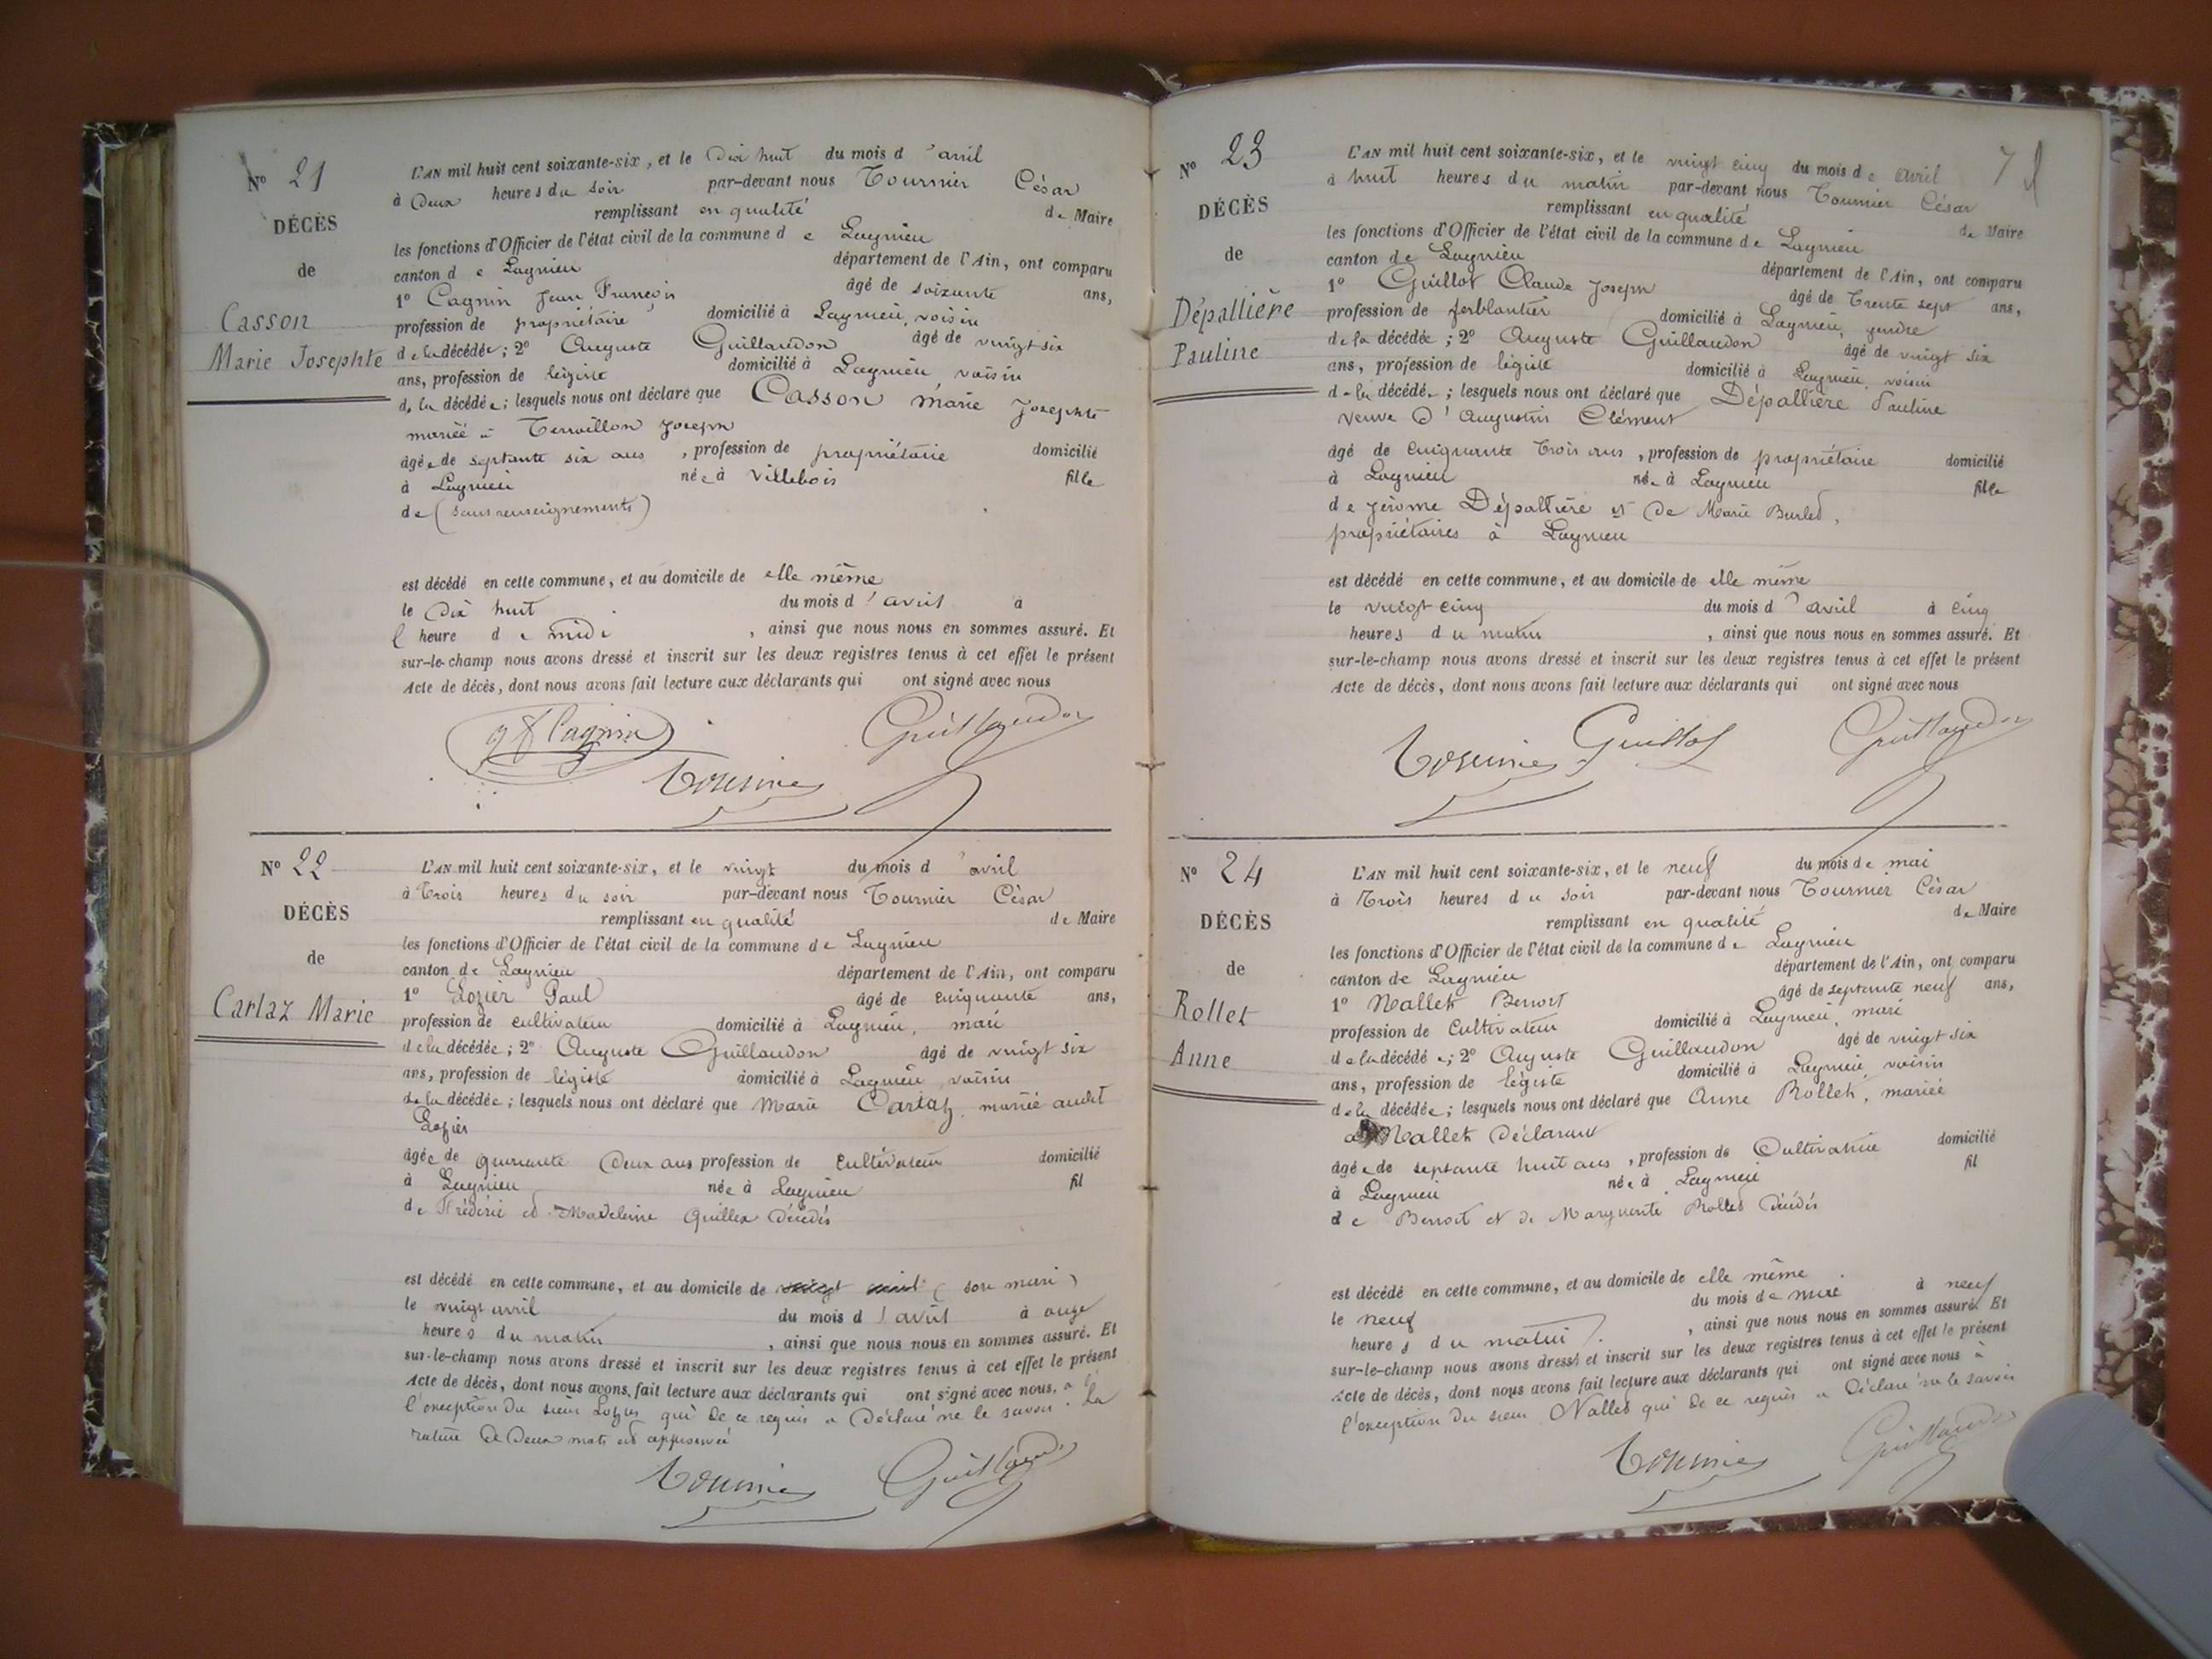 Nº 21
DÉCÈS
de
Casson
Marie Josephte
L'AN mil huit cent soixante-six, et le Dix huit du mois d'avril
à Deux heures du soir par-devant nous Tournier César
remplissant en qualité de Maire
les fonctions d'Officier de l'état civil de la commune de Lagnieu
canton de Lagnieu département de l'Ain, ont comparu
1º Cagnin Jean François âgé de soixante ans,
profession de propriétaire domicilié à Lagnieu, voisin
de la décédée; 2º Auguste Guillaudon âgé de vingt six
ans, profession de légiste domicilié à Lagnieu, voisin
de la décédée; lesquels nous ont déclaré que Casson marie Josephte
mariée à Terraillon Joseph
âgée de septante six ans, profession de propriétaire domicilié
à Lagnieu née à Villebois fille
de (sans renseignements)
est décédé en cette commune, et au domicile de elle même
le dix huit du mois d'avril à
l heure de midi, ainsi que nous nous en sommes assuré. Et
sur-le-champ nous avons dressé et inscrit sur les deux registres tenus à cet effet le présent
Acte de décès, dont nous avons fait lecture aux déclarants qui ont signé avec nous
Cagnin Guillaudon
Tournier
Nº 22
DÉCÈS
de
Carlaz Marie
L'AN mil huit cent soixante-six, et le vingt du mois d'avril
à Trois heures du soir par-devant nous Tournier César
remplissant en qualité de Maire
les fonctions d'Officier de l'état civil de la commune de Lagnieu
canton de Lagnieu département de l'Ain, ont comparu
1º Lozier Paul âgé de cinquante ans,
profession de cultivateur domicilié à Lagnieu, mari
de la décédée; 2º Auguste Guillaudon âgé de vingt six
ans, profession de légiste domicilié à Lagnieu, voisin
de la décédée; lesquels nous ont déclaré que Marie Carlaz, mariée audit
Lozier
âgée de quarante deux ans profession de cultivateur domicilié
à Lagnieu née à Lagnieu fil
de Frédéric et Madeleine décédés
est décédé en cette commune, et au domicile de (son mari)
le vingt avril du mois d'avril à onze
heures du matin, ainsi que nous nous en sommes assuré. Et
sur-le-champ nous avons dressé et inscrit sur les deux registres tenus à cet effet le présent
Acte de décès, dont nous avons fait lecture aux déclarants qui ont signé avec nous, à
l'exception du sieur Lozier qui de ce requis a déclaré ne le savoir. La
rature de deux mots est approuvée
Tournier Guillaudon
Nº 23
DÉCÈS
de
Dépallière
Pauline
L'AN mil huit cent soixante-six, et le vingt cinq du mois de avril 7
à huit heures du matin par-devant nous Tournier César
remplissant en qualité de Maire
les fonctions d'Officier de l'état civil de la commune de Lagnieu
canton de Lagnieu département de l'Ain, ont comparu
1º Guillot Claude Joseph âgé de trente sept ans,
profession de ferblantier domicilié à Lagnieu, gendre
de la décédée; 2º Auguste Guillaudon âgé de vingt six
ans, profession de légiste domicilié à Lagnieu, voisin
de la décédée; lesquels nous ont déclaré que Dépallière Pauline
veuve d'Augustin Clément
âgé de cinquante trois ans, profession de propriétaire domicilié
à Lagnieu née à Lagnieu fille
de Jérome Dépallière et de Marie Burlet,
propriétaires à Lagnieu
est décédé en cette commune, et au domicile de elle même
le vingt cinq du mois d'avril à cinq
heures du matin, ainsi que nous nous en sommes assuré. Et
sur-le-champ nous avons dressé et inscrit sur les deux registres tenus à cet effet le présent
Acte de décès, dont nous avons fait lecture aux déclarants qui ont signé avec nous
Tournier Guillot Guillaudon
Nº 24
DÉCÈS
de
Rollet
Anne
L'AN mil huit cent soixante-six, et le neuf du mois de mai
à Trois heures du soir par-devant nous Tournier César
remplissant en qualité de Maire
les fonctions d'Officier de l'état civil de la commune de Lagnieu
canton de Lagnieu département de l'Ain, ont comparu
1º Nallet Benoit âgé de septante neuf ans,
profession de Cultivateur domicilié à Lagnieu, mari
de la décédée; 2º Auguste Guillaudon âgé de vingt six
ans, profession de légiste domicilié à Lagnieu, voisin
de la décédée; lesquels nous ont déclaré que Anne Rollet, mariée
à Nallet Déclarant
âgée de septante huit ans, profession de Cultivatrice domicilié
à Lagnieu née à Lagnieu fil
de Benoit et de Marguerite Rollet décédés
est décédé en cette commune, et au domicile de elle même
le neuf du mois de mai à neuf
heures du matin, ainsi que nous nous en sommes assuré. Et
sur-le-champ nous avons dressé et inscrit sur les deux registres tenus à cet effet le présent
Acte de décès, dont nous avons fait lecture aux déclarants qui ont signé avec nous à
l'exception du sieur Nallet qui de ce requis a déclaré ne le savoir
Tournier Guillaudon